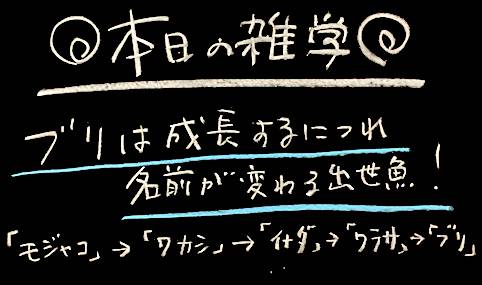 本日の雑学
ブリは成長するにつれ
名前が変わる出世魚!
「モジャコ」→「ワカシ」→「イナダ」→「ワラサ」→「ブリ」